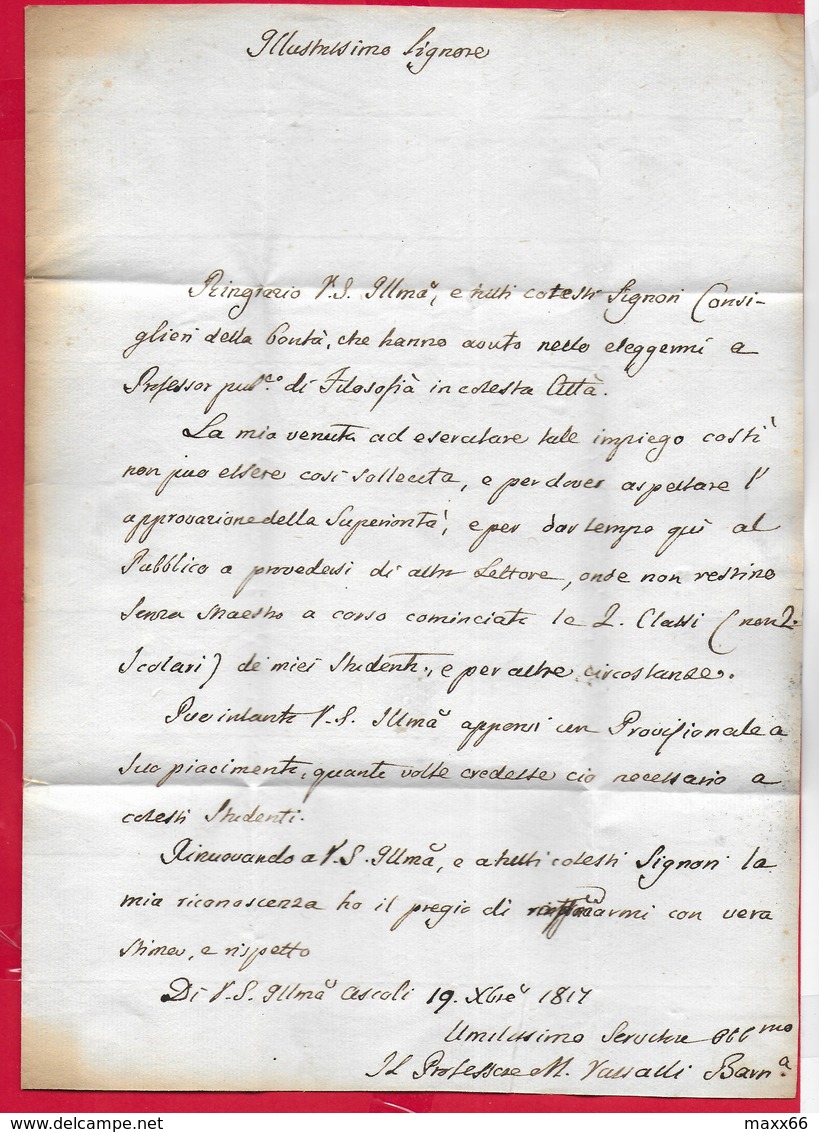 Illustrissimo Signore
Ringrazio V.S. Illma, e tutti cotesti Signori Consi-
glieri della bontà, che hanno avuto nello eleggermi a
Professor pub.co di Filosofià in cotesta Città.
La mia venuta ad esercitare tale impiego costì
non può essere così sollecita, e per dover aspettare l'
approvazione della Superiorità, e per dar tempo quì al
Pubblico a provedersi di altro Lettore, onde non restino
senza Maestro a corso cominciato le 2. Classi (non 2.
Scolari) de miei Studenti, e per altre circostanze.
Può intanto V.S. Illma apporvi un Provisionale a
suo piacimento, quante volte credesse ciò necessario a
cotesti Studenti.
Rinuovando a V.S. Illma, e a tutti cotesti Signori la
mia riconoscenza ho il pregio di con vera
stima, e rispetto
Di V.S. Illma Ascoli 19. Xbre 1817
Umilissimo Servitore Obb.mo
Il Professore M. Vassalli Barn.a
maxx66